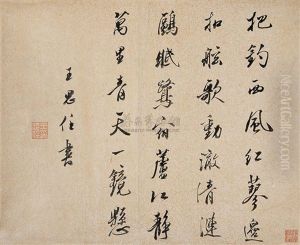 把釣西風紅蓼邊
扣舷歌動激清漣
鷗眠鷺宿蘆江靜
萬里青天一鏡懸
王思任書